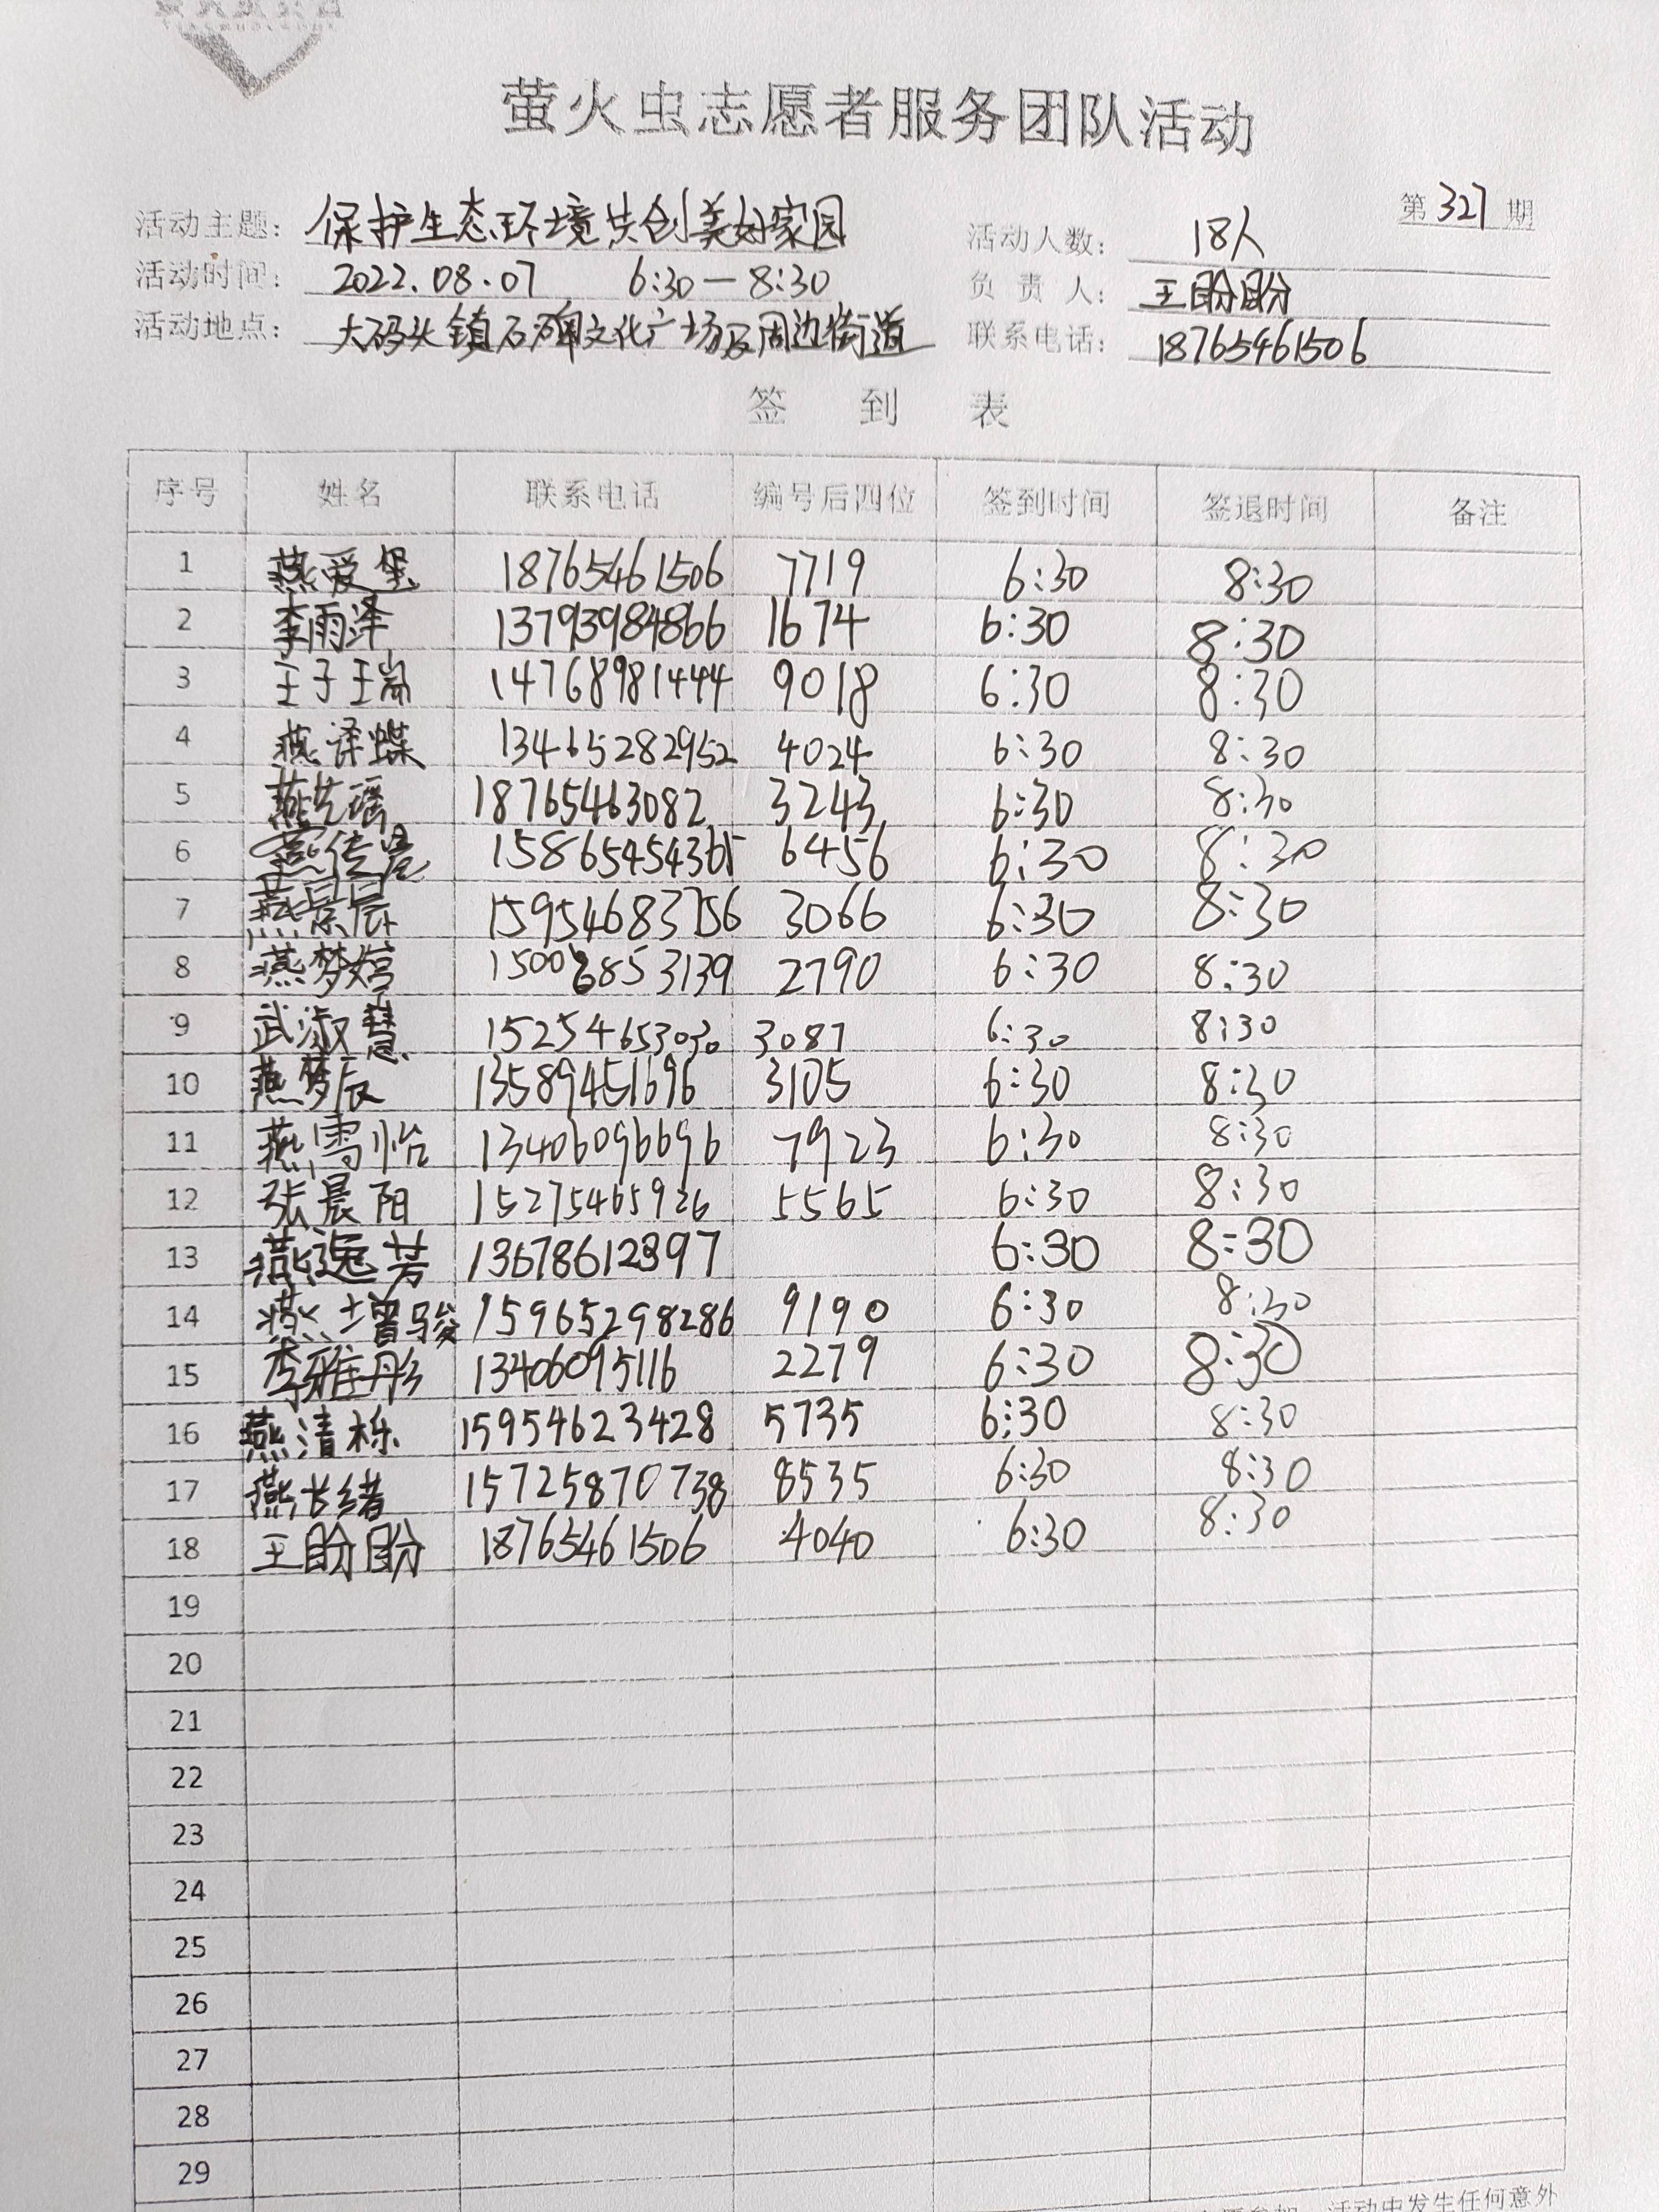 萤火虫志愿者服务团队活动
第 327 期
活动主题： 保护生态环境共创美好家园 活动人数： 18人
活动时间： 2022.08.07 6:30－8:30 负责人： 王盼盼
活动地点： 大码头镇石碑文化广场及周边街道 联系电话： 18765461506
签到表
序号 姓名 联系电话 编号后四位 签到时间 签退时间 备注
1 燕爱堡 18765461506 7719 6:30 8:30
2 李雨泽 13793984866 1674 6:30 8:30
3 王子瑞 14768981444 9018 6:30 8:30
4 燕译蝶 13465282952 4024 6:30 8:30
5 燕艺瑶 18765463082 3243 6:30 8:30
6 燕传 15865454365 6456 6:30 8:30
7 燕景辰 15954683756 3066 6:30 8:30
8 燕梦婷 15006853139 2790 6:30 8:30
9 武淑慧 15254653030 3087 6:30 8:30
10 燕梦辰 13589451696 3105 6:30 8:30
11 燕雪怡 13406096696 7923 6:30 8:30
12 张晨阳 15275465926 5565 6:30 8:30
13 燕逸芳 13678612397 6:30 8:30
14 燕增骏 15965298286 9190 6:30 8:30
15 李雅彤 13406095116 2279 6:30 8:30
16 燕清栎 15954623428 5735 6:30 8:30
17 燕长绪 15725870738 8535 6:30 8:30
18 王盼盼 18765461506 4040 6:30 8:30
19
20
21
22
23
24
25
26
27
28
29
活动中发生任何意外